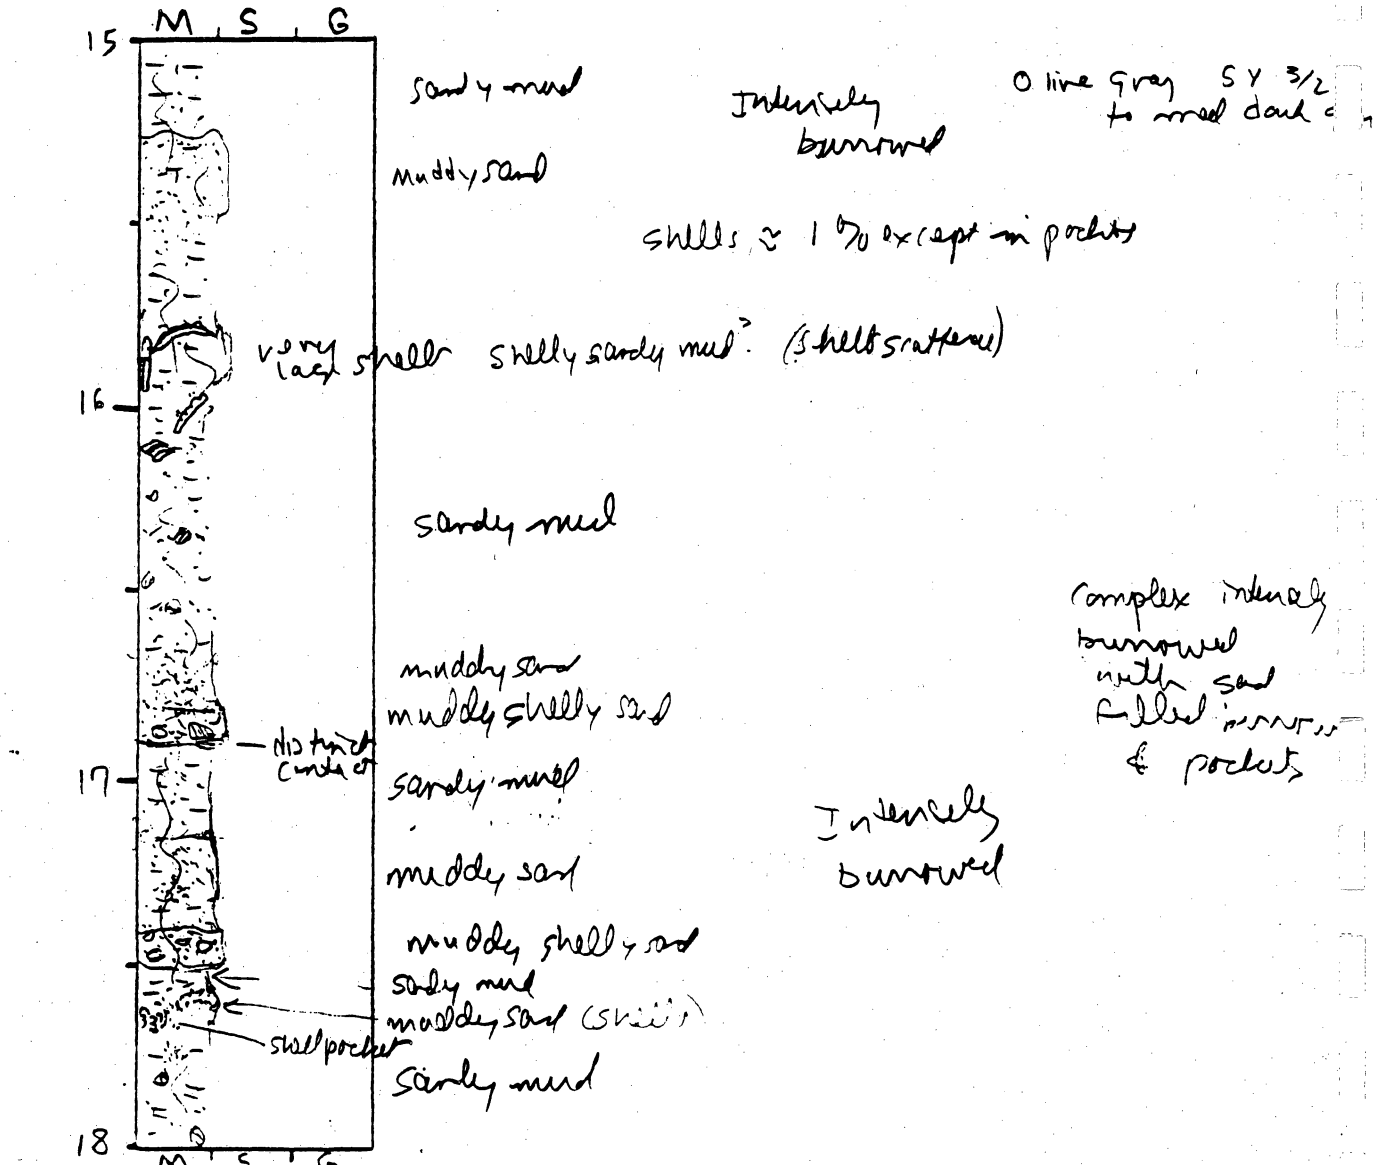 M S G
15
sandy mud
Intensely
burrowed
Olive Gray 5Y 3/2
to med dark
muddy sand
shells ≈ 1% except in pockets
very
large shells
shelly sandy mud? (shells scattered)
16
sandy mud
complex intensely
burrowed
with sand
filled burrows
& pockets
muddy sand
muddy shelly sand
distinct
contact
17
sandy mud
Intensely
burrowed
muddy sand
muddy shelly sand
sandy mud
muddy sand (shells)
shell pocket
sandy mud
18
M S G